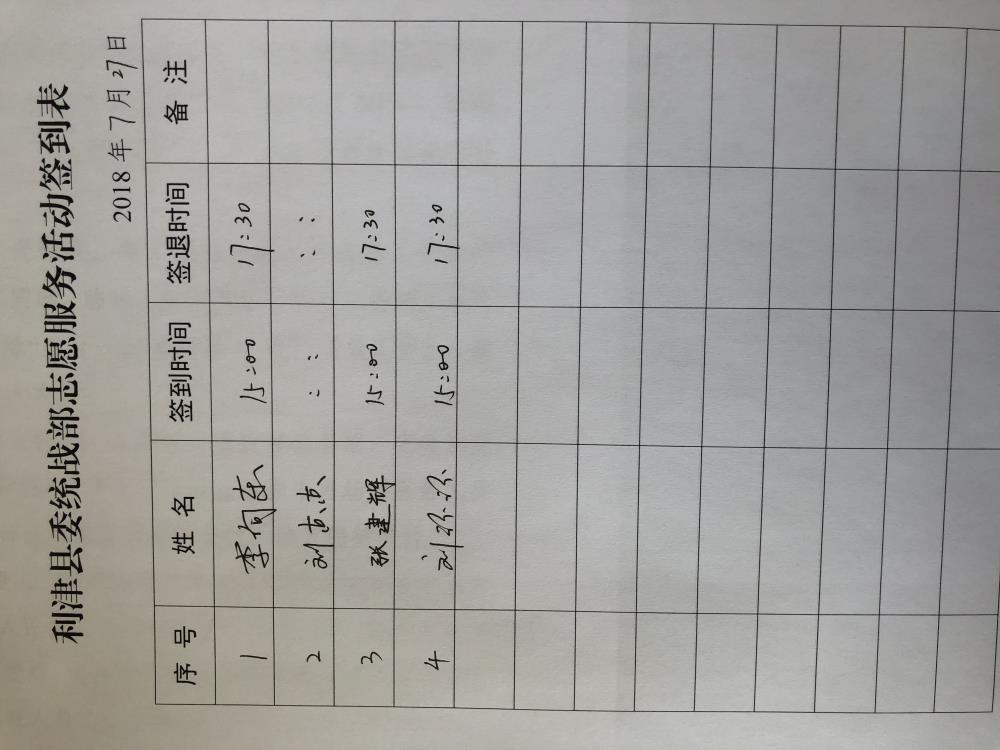 利津县委统战部志愿服务活动签到表
2018年7月27日
序号 姓名 签到时间 签退时间 备注
1 李向东 15:00 17:30
2 刘 : : : :
3 张建辉 15:00 17:30
4 刘 15:00 17:30